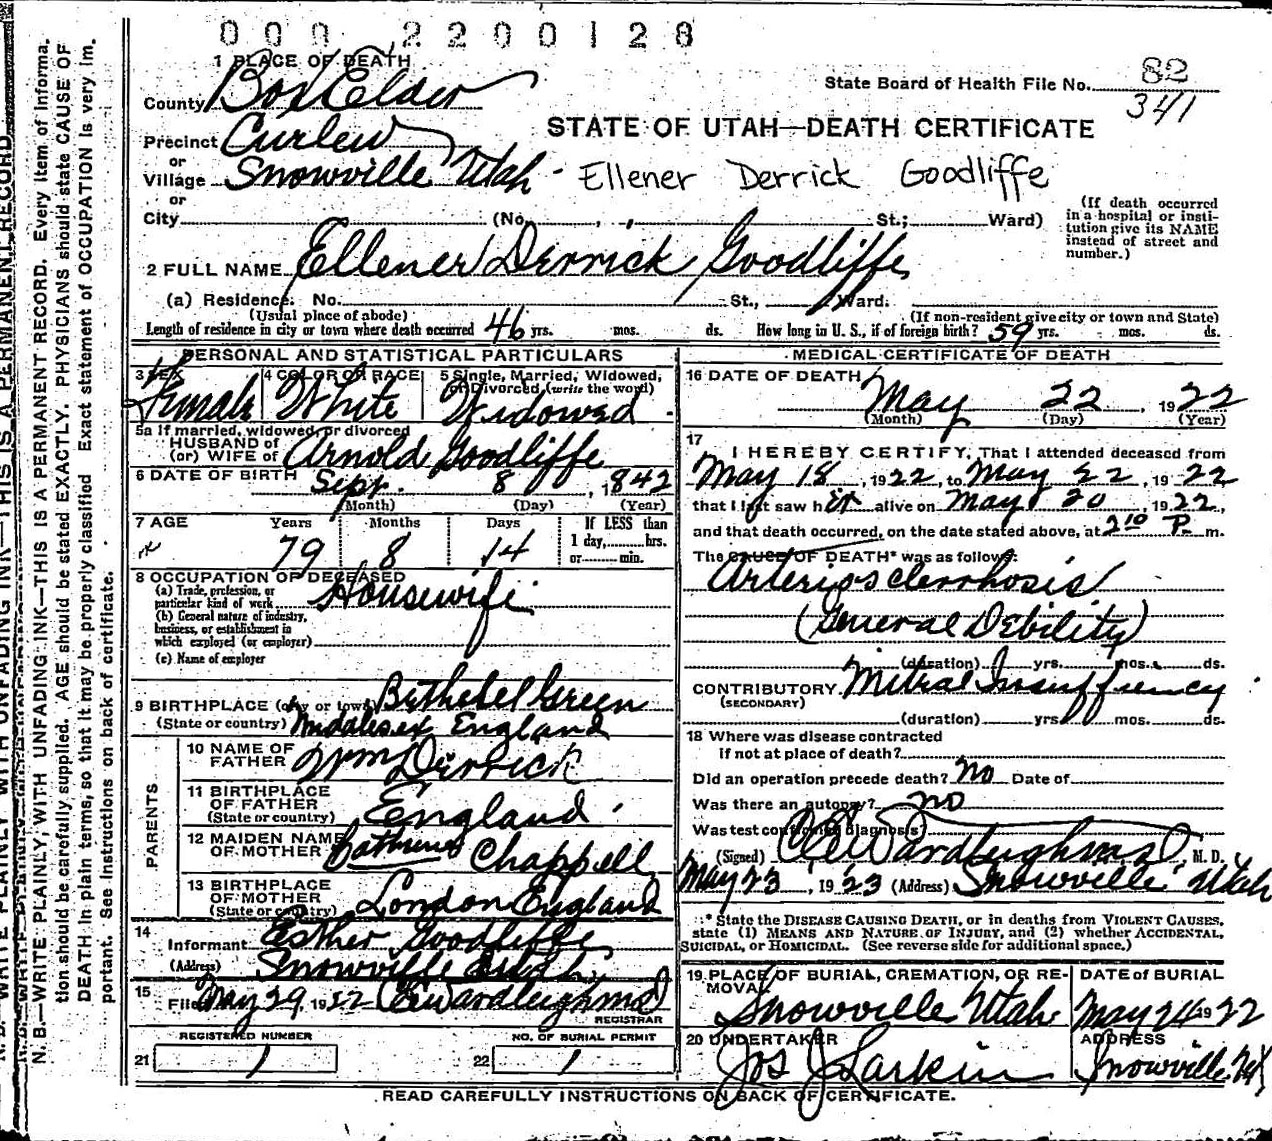 000 2200128
1 PLACE OF DEATH
82
State Board of Health File No.
341
County Box Elder
STATE OF UTAH—DEATH CERTIFICATE
Precinct Curlew
or
Village Snowville Utah - Ellener Derrick Goodliffe
or
City (No. , , St.; Ward)
(If death occurred
in a hospital or insti-
tution give its NAME
instead of street and
number.)
2 FULL NAME Ellener Derrick Goodliffe
(a) Residence: No. St., Ward.
(Usual place of abode) (If non-resident give city or town and State)
Length of residence in city or town where death occurred 46 yrs. mos. ds. How long in U. S., if of foreign birth? 59 yrs. mos. ds.
PERSONAL AND STATISTICAL PARTICULARS
3 SEX 4 COLOR OR RACE 5 Single, Married, Widowed,
or Divorced (write the word)
Female White Widowed
5a If married, widowed, or divorced
HUSBAND of
(or) WIFE of Arnold Goodliffe
6 DATE OF BIRTH Sept. 8, 1842
(Month) (Day) (Year)
7 AGE Years Months Days If LESS than
1 day, hrs.
or min.
79 8 14
8 OCCUPATION OF DECEASED
(a) Trade, profession, or
particular kind of work Housewife
(b) General nature of industry,
business, or establishment in
which employed (or employer)
(c) Name of employer
9 BIRTHPLACE (city or town) Bethebel Green
(State or country) Midalesex England
PARENTS
10 NAME OF
FATHER Wm Derrick
11 BIRTHPLACE
OF FATHER
(State or country) England
12 MAIDEN NAME
OF MOTHER Cathrine Chappell
13 BIRTHPLACE
OF MOTHER
(State or country) London England
14
Informant Esther Goodliffe
(Address) Snowville Utah
15
Filed May 29 1922 CE Wardleigh md
REGISTRAR
REGISTERED NUMBER NO. OF BURIAL PERMIT
21 1 22 1
MEDICAL CERTIFICATE OF DEATH
16 DATE OF DEATH
May 22, 1922
(Month) (Day) (Year)
17
I HEREBY CERTIFY, That I attended deceased from
May 18, 1922, to May 22, 1922
that I last saw h er alive on May 20, 1922,
and that death occurred, on the date stated above, at 2 10 P. m.
The CAUSE OF DEATH* was as follows:
Arteriosclerrhosis
(General Debility)
(duration) yrs. mos. ds.
CONTRIBUTORY Mitral Insuffiency
(SECONDARY)
(duration) yrs mos. ds.
18 Where was disease contracted
if not at place of death?
Did an operation precede death? No Date of
Was there an autopsy? no
Was test confirmed diagnosis)
(Signed) CE Wardleigh md, M. D.
May 23, 1923 (Address) Snowville Utah
* State the DISEASE CAUSING DEATH, or in deaths from VIOLENT CAUSES,
state (1) MEANS AND NATURE OF INJURY, and (2) whether ACCIDENTAL,
SUICIDAL, or HOMICIDAL. (See reverse side for additional space.)
19 PLACE OF BURIAL, CREMATION, OR RE-
MOVAL
DATE of BURIAL
Snowville Utah May 24 1922
20 UNDERTAKER ADDRESS
Jos J Larkin Snowville Ut
READ CAREFULLY INSTRUCTIONS ON BACK OF CERTIFICATE.
N. B.—WRITE PLAINLY, WITH UNFADING INK—THIS IS A PERMANENT RECORD. Every item of informa-
tion should be carefully supplied. AGE should be stated EXACTLY. PHYSICIANS should state CAUSE OF
DEATH in plain terms, so that it may be properly classified. Exact statement of OCCUPATION is very im-
portant. See Instructions on back of certificate.